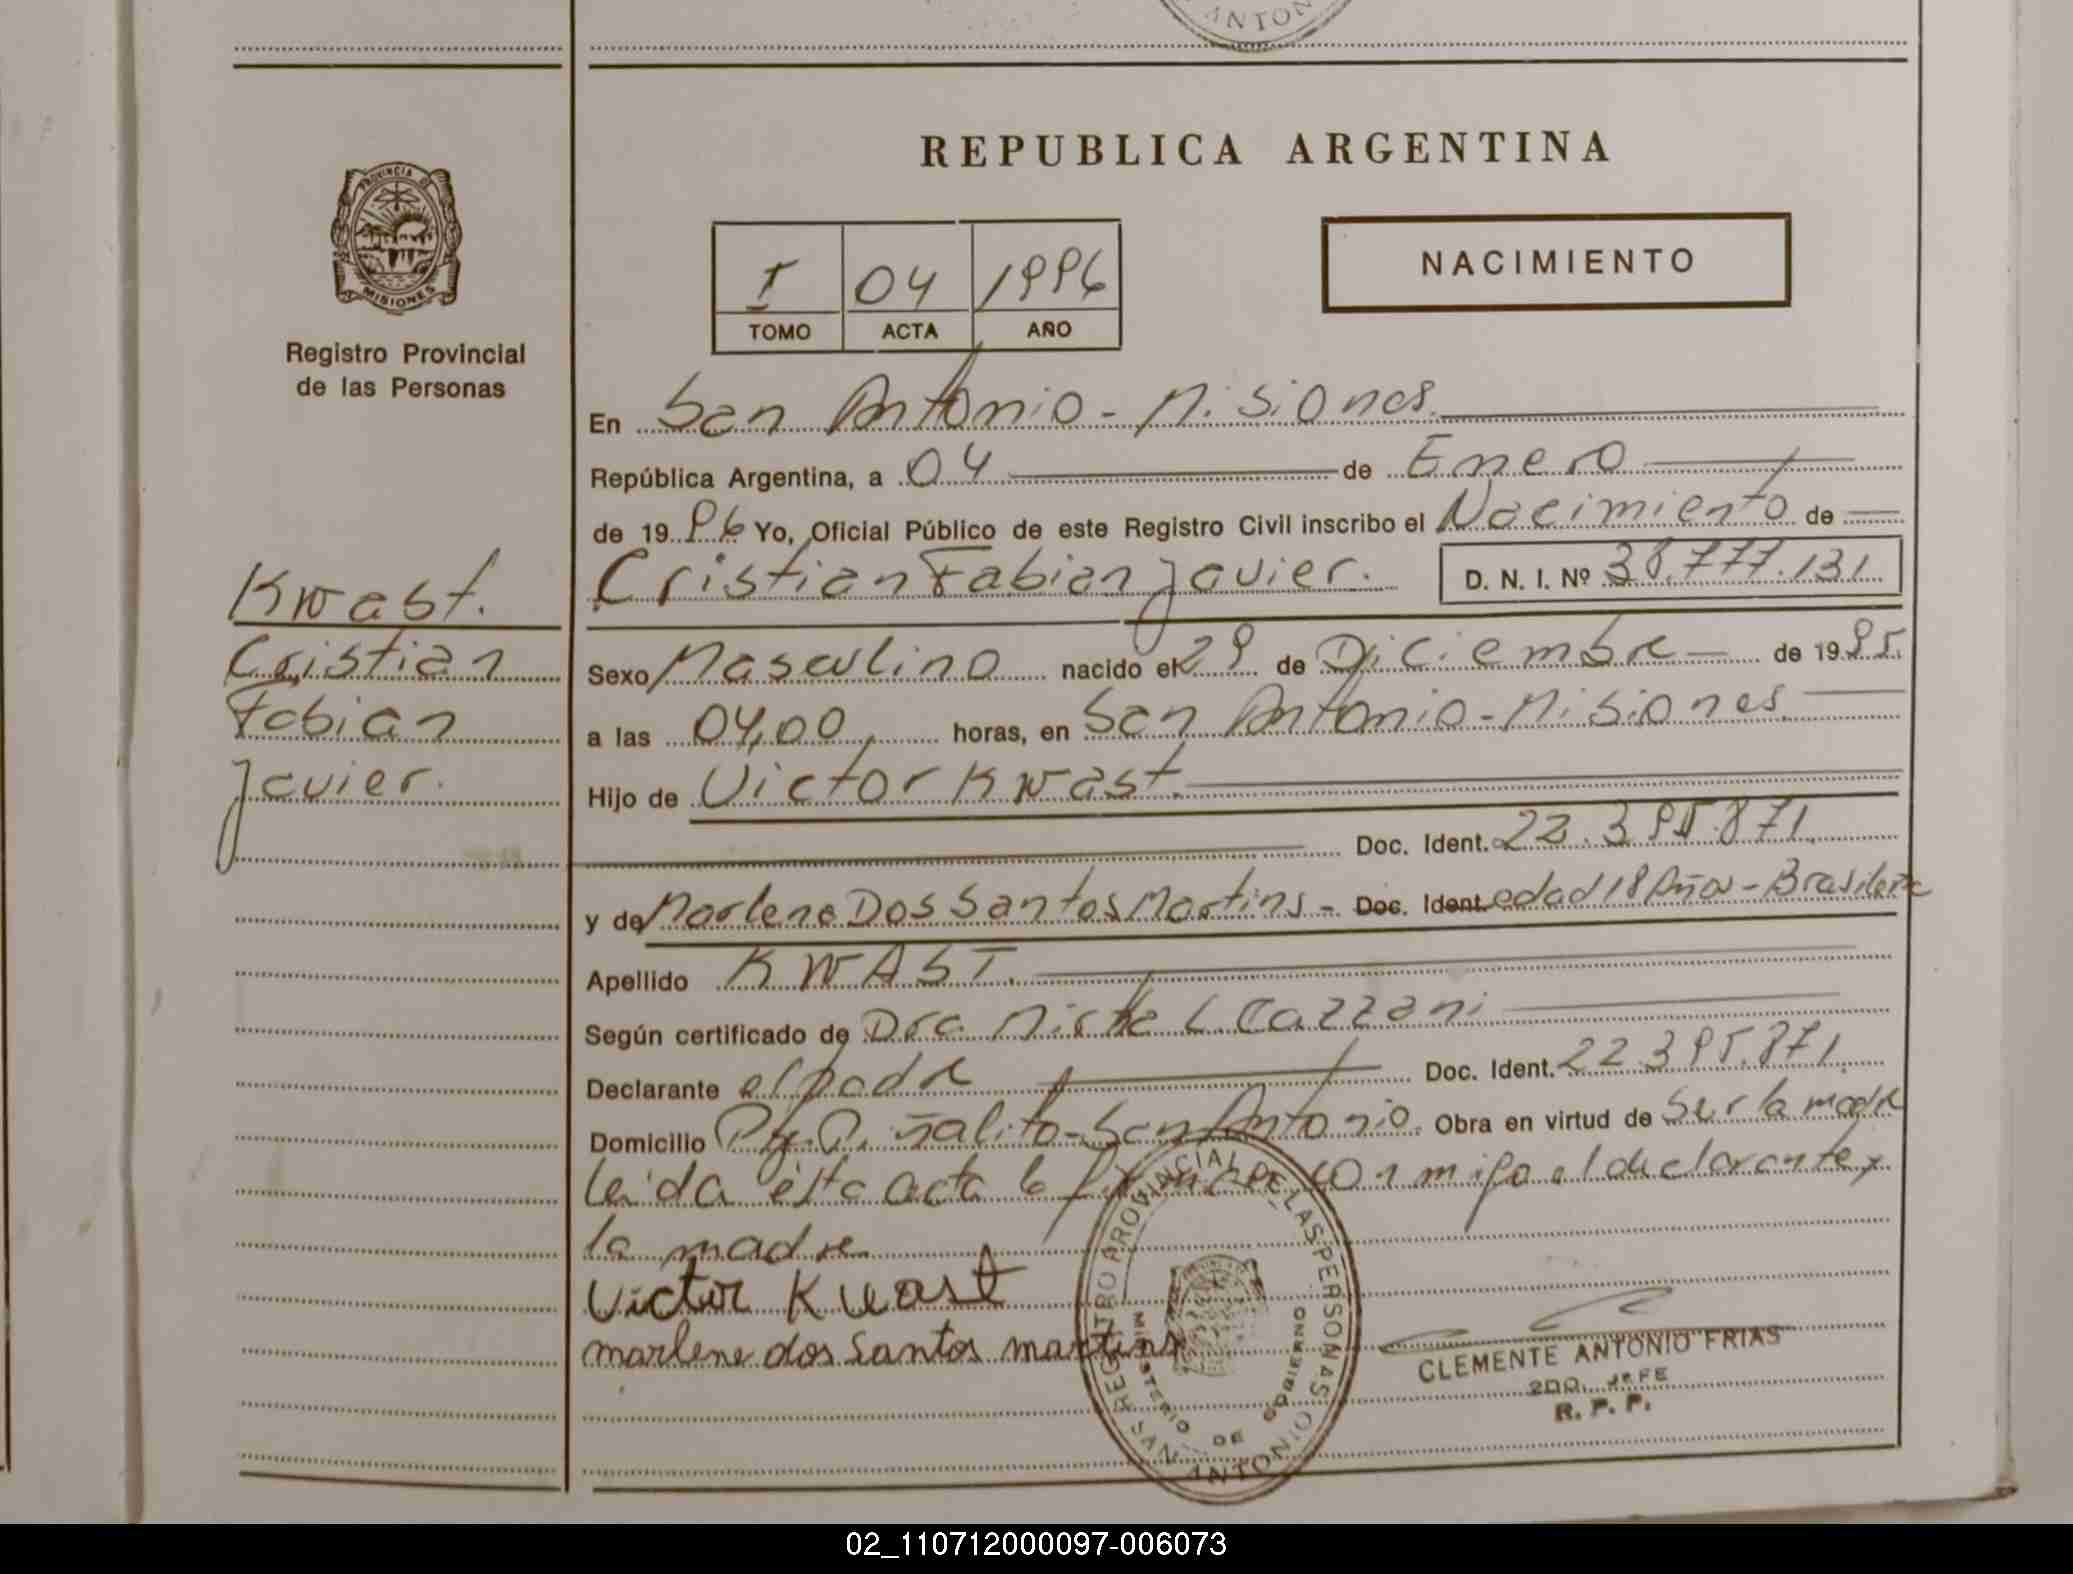 ANTON
REPUBLICA ARGENTINA
PROVINCIA DE
MISIONES
Registro Provincial
de las Personas
I 04 1996
TOMO ACTA AÑO
NACIMIENTO
En San Antonio - Misiones.
República Argentina, a 04 de Enero
de 1996 Yo, Oficial Público de este Registro Civil inscribo el Nacimiento de
Kwast.
Cristian Fabian Javier. D. N. I. Nº 38.777.131
Cristian
Sexo Masculino nacido el 29 de Diciembre de 1995.
Fabian
a las 04,00 horas, en San Antonio - Misiones
Javier.
Hijo de Victor Kwast.
Doc. Ident. 22.395.871
y de Marlene Dos Santos Martins - Doc. Ident. edad 18 Años - Brasileña
Apellido KWAST.
Según certificado de Dra. Mirta L. Cazzani
Declarante el padre Doc. Ident. 22.395.871
Domicilio San Antonio. Obra en virtud de Ser la madre
Leida esta acta la firman conmigo el declarante y
la madre
Victor Kwast
marlene dos Santos martins
REGISTRO PROVINCIAL DE LAS PERSONAS
MINISTERIO DE GOBIERNO
SAN ANTONIO
CLEMENTE ANTONIO FRIAS
2DO. JEFE
R. P. P.
02_110712000097-006073